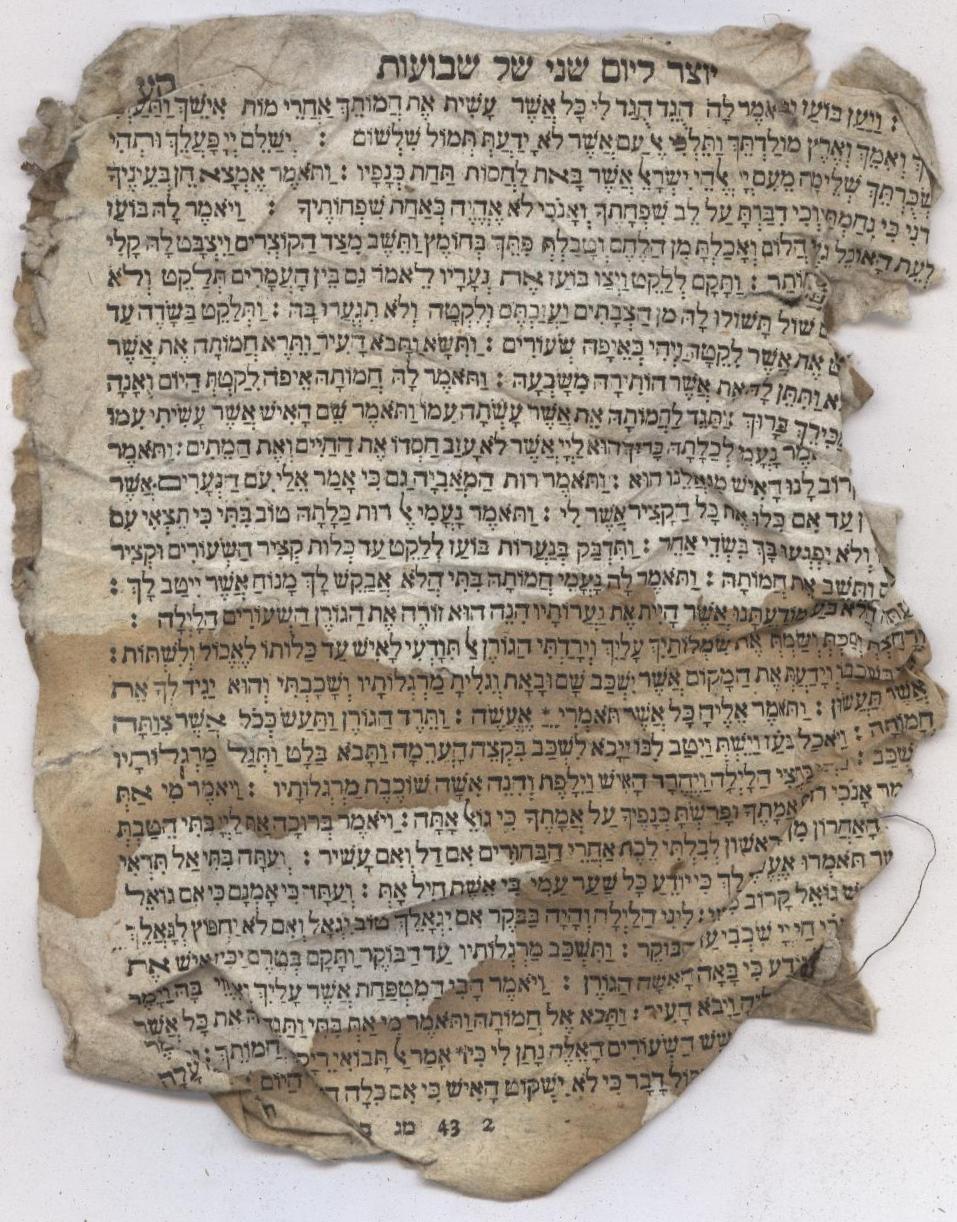 יוצר ליום שני של שבועות
קע
וַיַּעַן בּוֹעַז וַיֹּאמֶר לָהּ הֻגֵּד הֻגַּד לִי כָּל אֲשֶׁר עָשִׂית אֶת חֲמוֹתֵךְ אַחֲרֵי מוֹת אִישֵׁךְ וַתַּעַזְבִי :
וְאִמֵּךְ וְאֶרֶץ מוֹלַדְתֵּךְ וַתֵּלְכִי אֶל עַם אֲשֶׁר לֹא יָדַעַתְּ תְּמוֹל שִׁלְשׁוֹם : יְשַׁלֵּם יְיָ פָּעֳלֵךְ וּתְהִי
מַשְׂכֻּרְתֵּךְ שְׁלֵימָה מֵעִם יְיָ אֱלֹהֵי יִשְׂרָאֵל אֲשֶׁר בָּאת לַחֲסוֹת תַּחַת כְּנָפָיו : וַתֹּאמֶר אֶמְצָא חֵן בְּעֵינֶיךָ
כִּי נִחַמְתָּנִי וְכִי דִבַּרְתָּ עַל לֵב שִׁפְחָתֶךָ וְאָנֹכִי לֹא אֶהְיֶה כְּאַחַת שִׁפְחוֹתֶיךָ : וַיֹּאמֶר לָהּ בּוֹעַז
לְעֵת הָאוֹכֶל גֹּשִׁי הֲלוֹם וְאָכַלְתְּ מִן הַלֶּחֶם וְטָבַלְתְּ פִּתֵּךְ בַּחוֹמֶץ וַתֵּשֶׁב מִצַּד הַקּוֹצְרִים וַיִּצְבָּט לָהּ קָלִי
וַתּוֹתַר : וַתָּקָם לְלַקֵּט וַיְצַו בּוֹעַז אֶת נְעָרָיו לֵאמֹר גַּם בֵּין הָעֳמָרִים תְּלַקֵּט וְלֹא
שׁוֹל תָּשׁוֹלּוּ לָהּ מִן הַצְּבָתִים וַעֲזַבְתֶּם וְלִקְּטָה וְלֹא תִגְעֲרוּ בָהּ : וַתְּלַקֵּט בַּשָּׂדֶה עַד
אֶת אֲשֶׁר לִקֵּטָה וַיְהִי כְּאֵיפָה שְׂעוֹרִים : וַתִּשָּׂא וַתָּבֹא הָעִיר וַתֵּרֶא חֲמוֹתָהּ אֵת אֲשֶׁר
וַתִּתֵּן לָהּ אֵת אֲשֶׁר הוֹתִירָה מִשָּׂבְעָהּ : וַתֹּאמֶר לָהּ חֲמוֹתָהּ אֵיפֹה לִקַּטְתְּ הַיּוֹם וְאָנָה
מַכִּירֵךְ בָּרוּךְ וַתַּגֵּד לַחֲמוֹתָהּ אֵת אֲשֶׁר עָשְׂתָה עִמּוֹ וַתֹּאמֶר שֵׁם הָאִישׁ אֲשֶׁר עָשִׂיתִי עִמּוֹ
נָעֳמִי לְכַלָּתָהּ בָּרוּךְ הוּא לַיְיָ אֲשֶׁר לֹא עָזַב חַסְדּוֹ אֶת הַחַיִּים וְאֶת הַמֵּתִים : וַתֹּאמֶר
קָרוֹב לָנוּ הָאִישׁ מִגּוֹאֲלֵנוּ הוּא : וַתֹּאמֶר רוּת הַמֹּאֲבִיָּה גַּם כִּי אָמַר אֵלַי עִם הַנְּעָרִים אֲשֶׁר
עַד אִם כִּלּוּ אֵת כָּל הַקָּצִיר אֲשֶׁר לִי : וַתֹּאמֶר נָעֳמִי אֶל רוּת כַּלָּתָהּ טוֹב בִּתִּי כִּי תֵצְאִי עִם
וְלֹא יִפְגְּעוּ בָךְ בְּשָׂדֶי אַחֵר : וַתִּדְבַּק בְּנַעֲרוֹת בּוֹעַז לְלַקֵּט עַד כְּלוֹת קְצִיר הַשְּׂעוֹרִים וּקְצִיר
וַתֵּשֶׁב אֶת חֲמוֹתָהּ : וַתֹּאמֶר לָהּ נָעֳמִי חֲמוֹתָהּ בִּתִּי הֲלֹא אֲבַקֶּשׁ לָךְ מָנוֹחַ אֲשֶׁר יִיטַב לָךְ :
הֲלֹא בֹעַז מוֹדַעְתָּנוּ אֲשֶׁר הָיִית אֶת נַעֲרוֹתָיו הִנֵּה הוּא זוֹרֶה אֶת הַגּוֹרֶן הַשְּׂעוֹרִים הַלַּיְלָה :
וְרָחַצְתְּ וָסַכְתְּ וְשַׂמְתְּ אֶת שִׂמְלוֹתַיִךְ עָלַיִךְ וְיָרַדְתִּי הַגּוֹרֶן אַל תִּוָּדְעִי לָאִישׁ עַד כַּלּוֹתוֹ לֶאֱכוֹל וְלִשְׁתּוֹת :
בְשָׁכְבוֹ וְיָדַעַתְּ אֶת הַמָּקוֹם אֲשֶׁר יִשְׁכַּב שָׁם וּבָאת וְגִלִּית מַרְגְּלוֹתָיו וְשָׁכָבְתִּי וְהוּא יַגִּיד לָךְ אֵת
אֲשֶׁר תַּעֲשׂוּן : וַתֹּאמֶר אֵלֶיהָ כָּל אֲשֶׁר תֹּאמְרִי אֶעֱשֶׂה : וַתֵּרֶד הַגּוֹרֶן וַתַּעַשׂ כְּכֹל אֲשֶׁר צִוַּתָּה
חֲמוֹתָהּ : וַיֹּאכַל בֹּעַז וַיֵּשְׁתְּ וַיִּיטַב לִבּוֹ וַיָּבֹא לִשְׁכַּב בִּקְצֵה הָעֲרֵמָה וַתָּבֹא בַלָּט וַתְּגַל מַרְגְּלוֹתָיו
וַתִּשְׁכָּב : בַּחֲצִי הַלַּיְלָה וַיֶּחֱרַד הָאִישׁ וַיִּלָּפֵת וְהִנֵּה אִשָּׁה שׁוֹכֶבֶת מַרְגְּלוֹתָיו : וַיֹּאמֶר מִי אַתְּ
אָנֹכִי רוּת אֲמָתֶךָ וּפָרַשְׂתָּ כְנָפֶיךָ עַל אֲמָתְךָ כִּי גוֹאֵל אָתָּה : וַיֹּאמֶר בְּרוּכָה אַתְּ לַיְיָ בִּתִּי הֵיטַבְתְּ
הָאַחֲרוֹן מִן הָרִאשׁוֹן לְבִלְתִּי לֶכֶת אַחֲרֵי הַבַּחוּרִים אִם דַּל וְאִם עָשִׁיר : וְעַתָּה בִּתִּי אַל תִּירְאִי
תֹּאמְרִי אֶעֱשֶׂה לָּךְ כִּי יוֹדֵעַ כָּל שַׁעַר עַמִּי כִּי אֵשֶׁת חַיִל אָתְּ : וְעַתָּה כִּי אָמְנָם כִּי אִם גוֹאֵל
יֵשׁ גּוֹאֵל קָרוֹב מִמֶּנִּי : לִינִי הַלַּיְלָה וְהָיָה בַבֹּקֶר אִם יִגְאָלֵךְ טוֹב יִגְאָל וְאִם לֹא יַחְפּוֹץ לְגָאֳלֵךְ
חַי יְיָ שִׁכְבִי עַד הַבּוֹקֶר : וַתִּשְׁכַּב מַרְגְּלוֹתָיו עַד הַבּוֹקֶר וַתָּקָם בְּטֶרֶם יַכִּיר אִישׁ אֶת
יִוָּדַע כִּי בָאָה הָאִשָּׁה הַגּוֹרֶן : וַיֹּאמֶר הָבִי הַמִּטְפַּחַת אֲשֶׁר עָלַיִךְ וְאֶחֳזִי בָהּ
וַיָּבֹא הָעִיר : וַתָּבֹא אֶל חֲמוֹתָהּ וַתֹּאמֶר מִי אַתְּ בִּתִּי וַתַּגֶּד לָהּ אֵת כָּל אֲשֶׁר
שֵׁשׁ הַשְּׂעוֹרִים הָאֵלֶּה נָתַן לִי כִּי אָמַר אַל תָּבוֹאִי רֵיקָם חֲמוֹתֵךְ :
דָּבָר כִּי לֹא יִשְׁקוֹט הָאִישׁ כִּי אִם כִּלָּה הַיּוֹם : עָלָה
2 43 מג